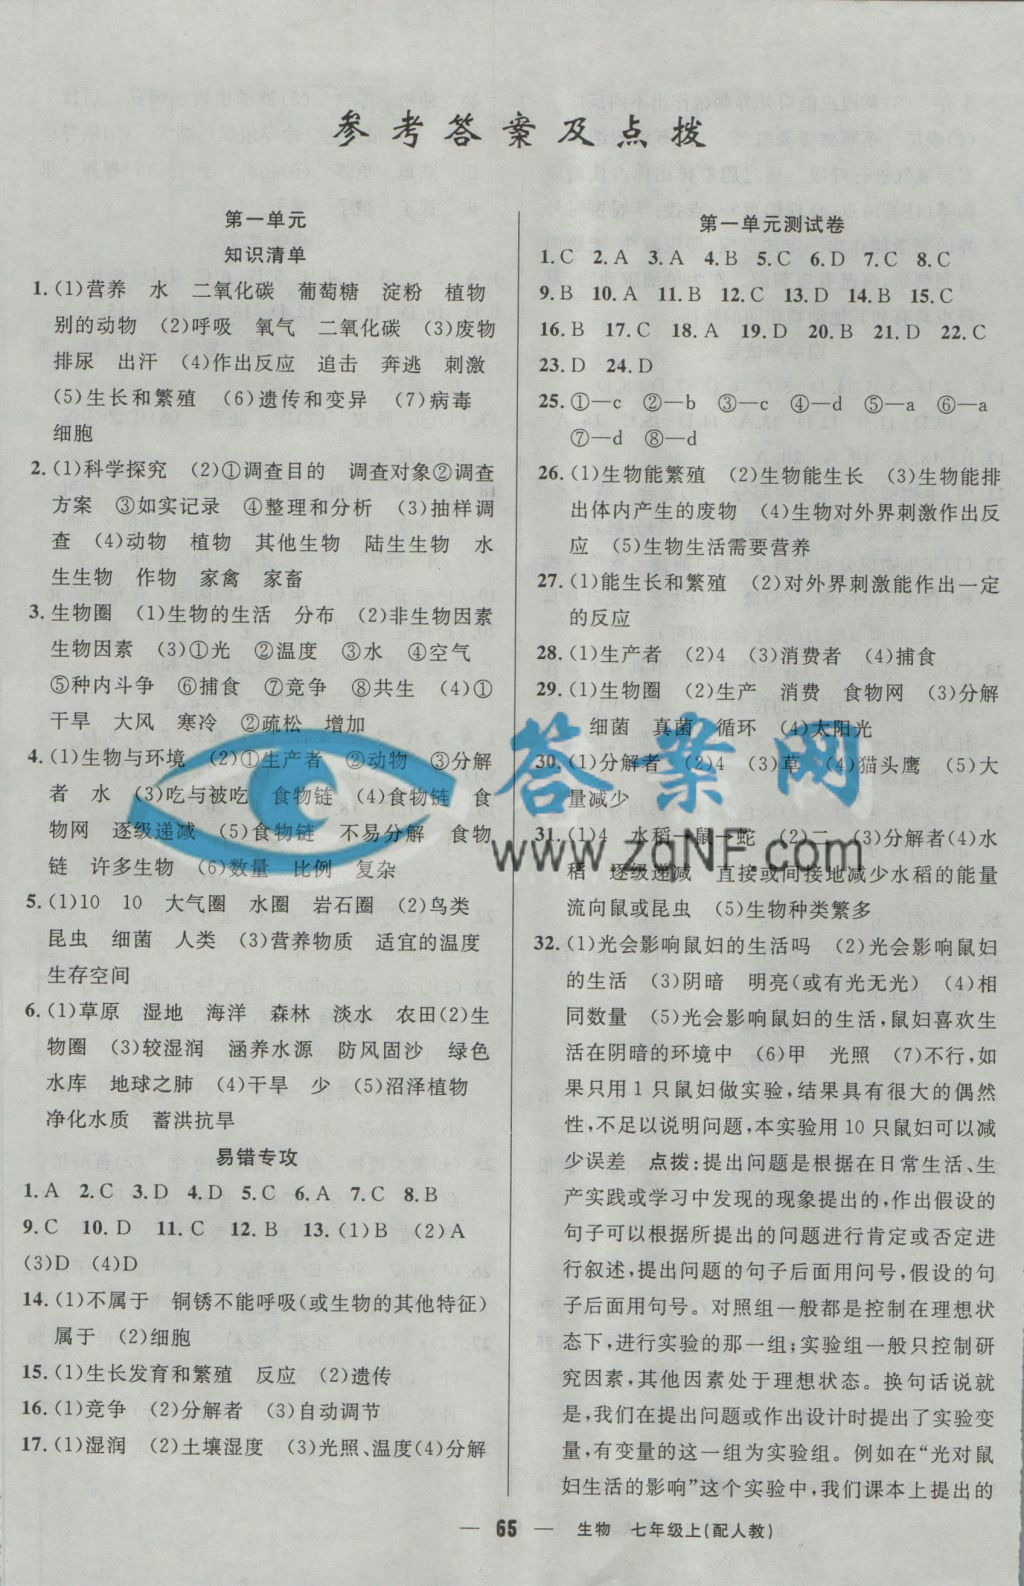 参考答案及点拨
第一单元
知识清单
1. (1)营养 水 二氧化碳 葡萄糖 淀粉 植物
别的动物 (2)呼吸 氧气 二氧化碳 (3)废物
排尿 出汗 (4)作出反应 追击 奔逃 刺激
(5)生长和繁殖 (6)遗传和变异 (7)病毒
细胞
2. (1)科学探究 (2)①调查目的 调查对象②调查
方案 ③如实记录 ④整理和分析 (3)抽样调
查 (4)动物 植物 其他生物 陆生生物 水
生生物 作物 家禽 家畜
3. 生物圈 (1)生物的生活 分布 (2)非生物因素
生物因素 (3)①光 ②温度 ③水 ④空气
⑤种内斗争 ⑥捕食 ⑦竞争 ⑧共生 (4)①
干旱 大风 寒冷 ②疏松 增加
4. (1)生物与环境 (2)①生产者 ②动物 ③分解
者 水 (3)吃与被吃 食物链 (4)食物链 食
物网 逐级递减 (5)食物链 不易分解 食物
链 许多生物 (6)数量 比例 复杂
5. (1)10 10 大气圈 水圈 岩石圈 (2)鸟类
昆虫 细菌 人类 (3)营养物质 适宜的温度
生存空间
6. (1)草原 湿地 海洋 森林 淡水 农田(2)生
物圈 (3)较湿润 涵养水源 防风固沙 绿色
水库 地球之肺 (4)干旱 少 (5)沼泽植物
净化水质 蓄洪抗旱
易错专攻
1. A 2. C 3. D 4. D 5. C 6. A 7. C 8. B
9. C 10. D 11. C 12. B 13. (1)B (2)A
(3)D (4)D
14. (1)不属于 铜锈不能呼吸(或生物的其他特征)
属于 (2)细胞
15. (1)生长发育和繁殖 反应 (2)遗传
16. (1)竞争 (2)分解者 (3)自动调节
17. (1)湿润 (2)土壤湿度 (3)光照、温度(4)分解
第一单元测试卷
1. C 2. A 3. A 4. B 5. C 6. D 7. C 8. C
9. B 10. A 11. B 12. C 13. D 14. B 15. C
16. B 17. C 18. A 19. D 20. B 21. D 22. C
23. D 24. D
25. ①—c ②—b ③—c ④—d ⑤—a ⑥—a
⑦—d ⑧—d
26. (1)生物能繁殖 (2)生物能生长 (3)生物能排
出体内产生的废物 (4)生物对外界刺激作出反
应 (5)生物生活需要营养
27. (1)能生长和繁殖 (2)对外界刺激能作出一定
的反应
28. (1)生产者 (2)4 (3)消费者 (4)捕食
29. (1)生物圈 (2)生产 消费 食物网 (3)分解
细菌 真菌 循环 (4)太阳光
30. (1)分解者 (2)4 (3)草 (4)猫头鹰 (5)大
量减少
31. (1)4 水稻—鼠—蛇 (2)二 (3)分解者(4)水
稻 逐级递减 直接或间接地减少水稻的能量
流向鼠或昆虫 (5)生物种类繁多
32. (1)光会影响鼠妇的生活吗 (2)光会影响鼠妇
的生活 (3)阴暗 明亮(或有光无光) (4)相
同数量 (5)光会影响鼠妇的生活,鼠妇喜欢生
活在阴暗的环境中 (6)甲 光照 (7)不行,如
果只用1只鼠妇做实验,结果具有很大的偶然
性,不足以说明问题,本实验用10只鼠妇可以减
少误差 点拨:提出问题是根据在日常生活、生
产实践或学习中发现的现象提出的,作出假设的
句子可以根据所提出的问题进行肯定或否定进
行叙述,提出问题的句子后面用问号,假设的句
子后面用句号。对照组一般都是控制在理想状
态下,进行实验的那一组;实验组一般只控制研
究因素,其他因素处于理想状态。换句话说就
是,我们在提出问题或作出设计时提出了实验变
量,有变量的这一组为实验组。例如在“光对鼠
妇生活的影响”这个实验中,我们课本上提出的
答案网
www.zqNF.com
— 65 — 生物 七年级上(配人教)